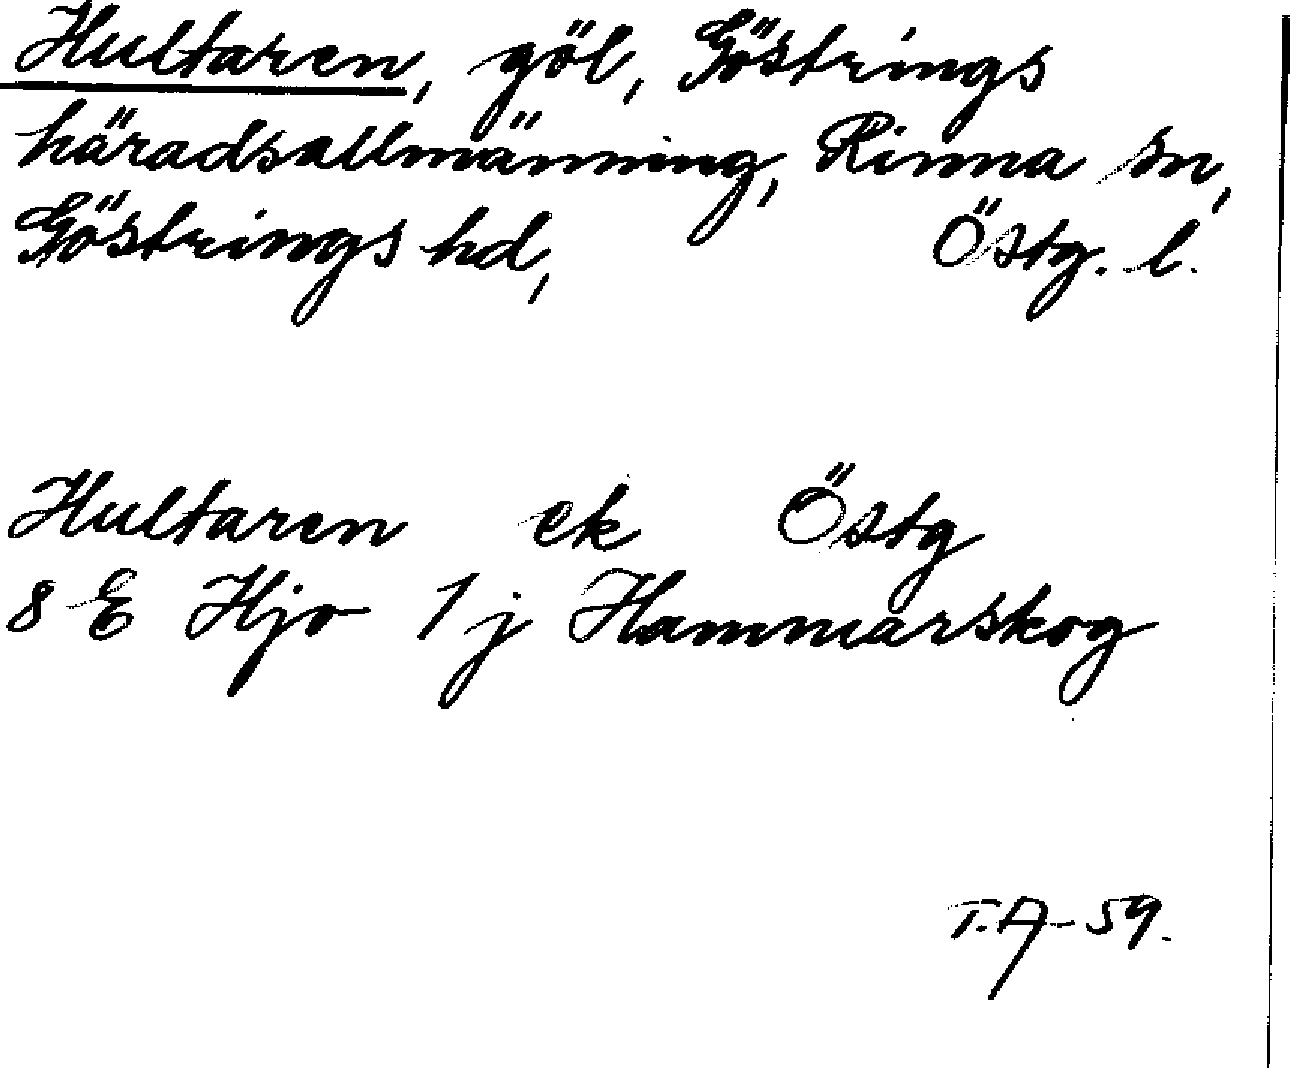 Hultaren, göl, Göstrings
häradsallmänning, Rinna sn,
Göstrings hd, Östg. l.
Hultaren ek Östg
8 E Hjo 1 j Hammarskog
T.A-59.